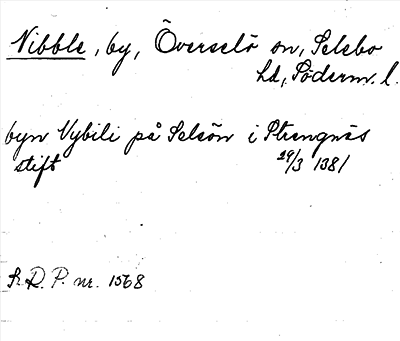 Nibble, by, Överselö sn, Selebo
hd, Söderm. l.
byn Nybili på Selsön i Strengnäs
stift 29/3 1381
S.R.P. nr. 1568